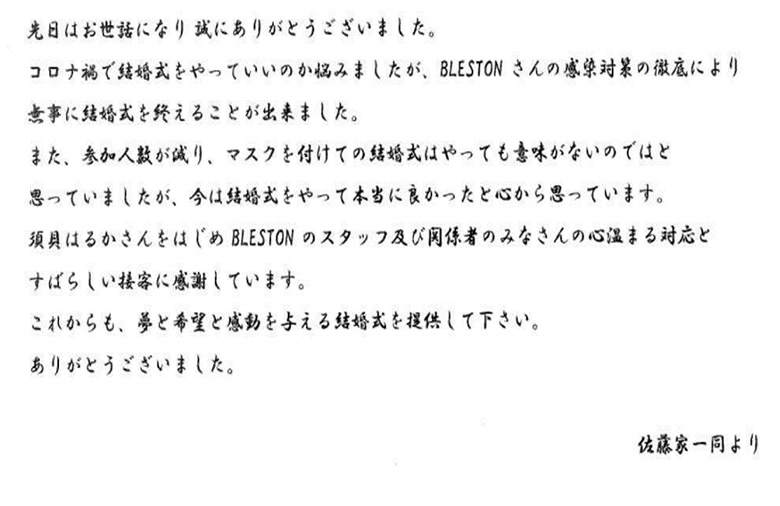 先日はお世話になり 誠にありがとうございました。
コロナ禍で結婚式をやっていいのか悩みましたが、BLESTON さんの感染対策の徹底により
無事に結婚式を終えることが出来ました。
また、参加人数が減り、マスクを付けての結婚式はやっても意味がないのではと
思っていましたが、今は結婚式をやって本当に良かったと心から思っています。
須貝はるかさんをはじめ BLESTON のスタッフ及び関係者のみなさんの心温まる対応と
すばらしい接客に感謝しています。
これからも、夢と希望と感動を与える結婚式を提供して下さい。
ありがとうございました。
佐藤家一同より